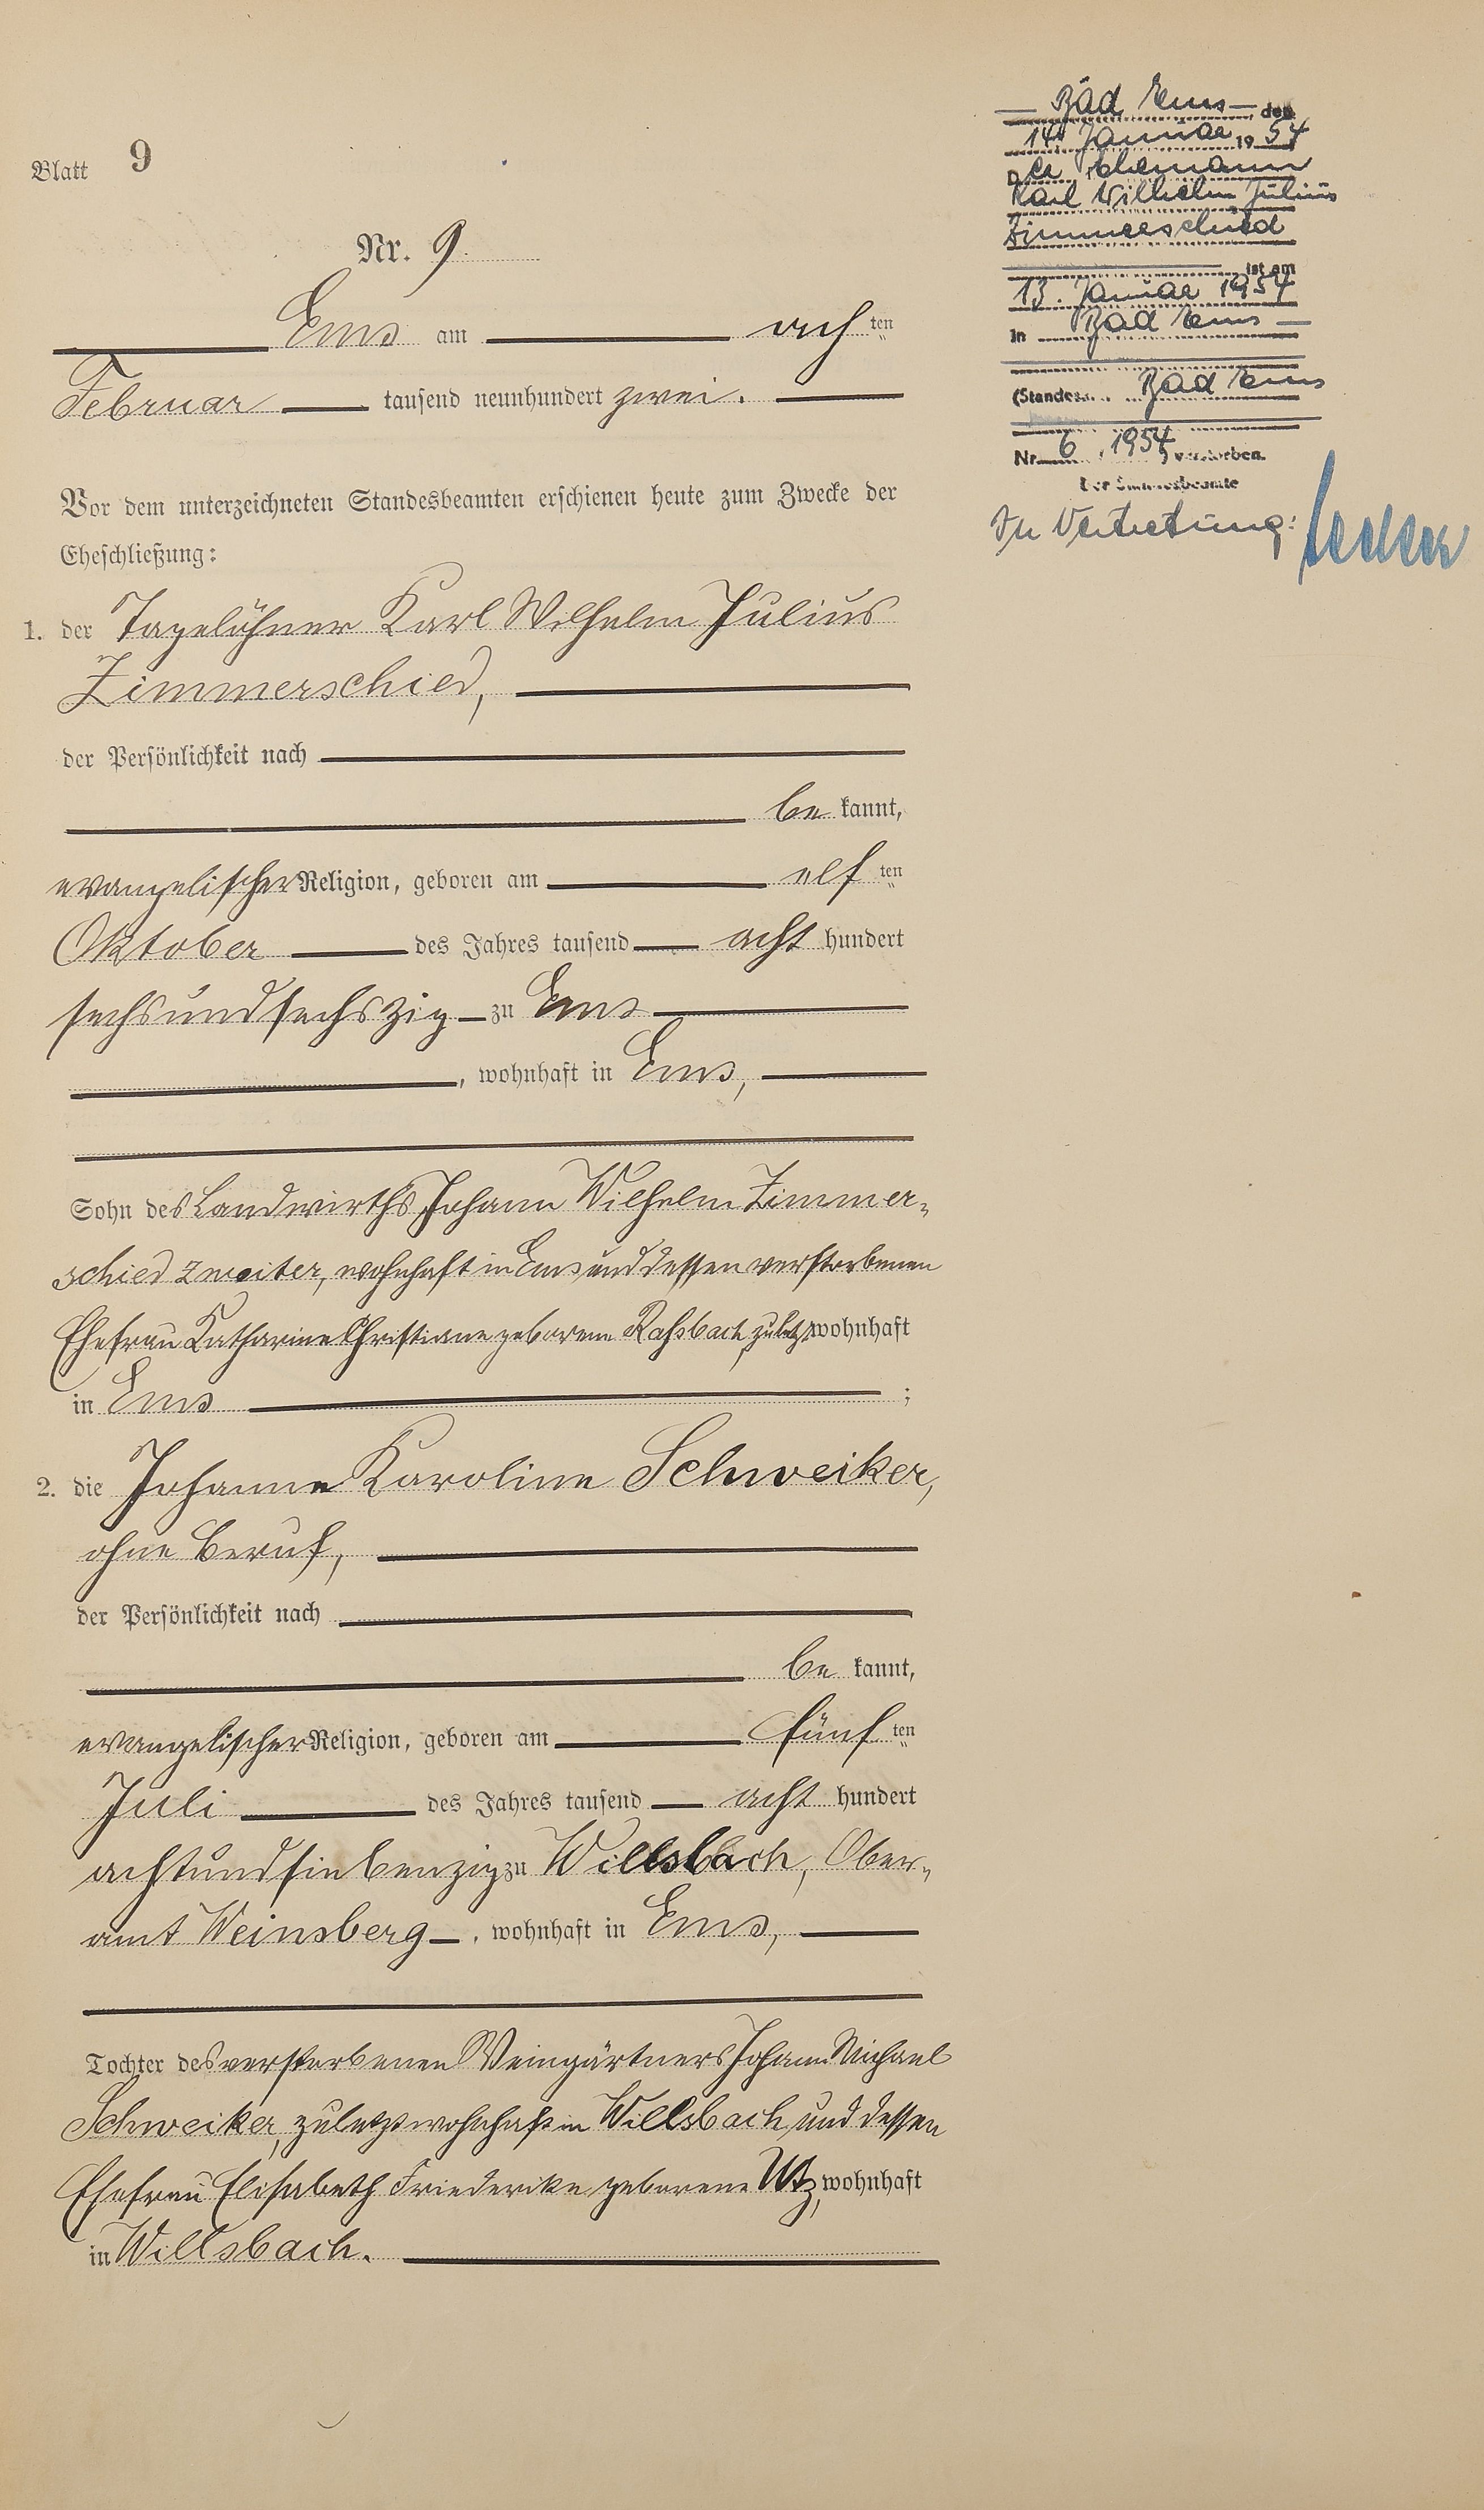 Blatt 9
Nr. 9.
Ems am achten
Februar tausend neunhundert zwei.
Vor dem unterzeichneten Standesbeamten erschienen heute zum Zwecke der
Eheschließung:
1. der Tagelöhner Karl Wilhelm Julius
Zimmerschied,
der Persönlichkeit nach
be kannt,
evangelischer Religion, geboren am elften
Oktober des Jahres tausend acht hundert
sechsundsechszig zu Ems
, wohnhaft in Ems,
Sohn des Landwirths Johann Wilhelm Zimmer-
schied zweiter, wohnhaft in Ems und dessen verstorbenen
Ehefrau Katharine Christiane geborene Raßbach, zuletzt wohnhaft
in Ems ;
2. die Johanne Karoline Schweiker,
ohne Beruf,
der Persönlichkeit nach
be kannt,
evangelischer Religion, geboren am fünften
Juli des Jahres tausend acht hundert
achtundsiebenzig zu Willsbach, Ober-
amt Weinsberg, wohnhaft in Ems,
Tochter des verstorbenen Weingärtners Johann Michael
Schweiker, zuletzt wohnhaft in Willsbach und dessen
Ehefrau Elisabeth Friederike geborene Utz, wohnhaft
in Willsbach.
Bad Ems, den
14. Januar 1954
Der Ehemann
Karl Wilhelm Julius
Zimmerschied
ist am
13. Januar 1954
in Bad Ems
(Standesa. Bad Ems
Nr. 6, 1954) verstorben.
Der Standesbeamte
In Vertretung: